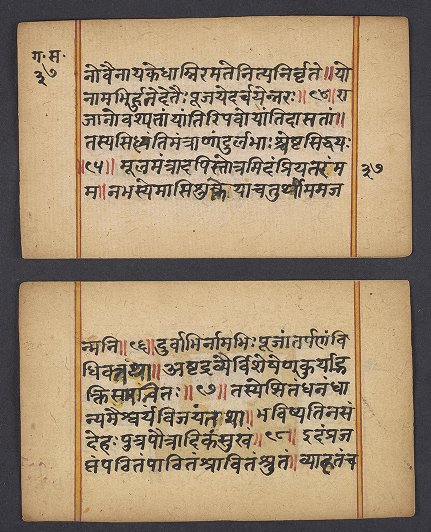 ग॰ स॰
३७
नोवैनायकेधाम्निरमतेनित्यनिर्वृते॥यो
नामभिर्हुतेदेतैः पूजयेदर्चयेन्नरः॥९४॥रा
जानोवश्यतांयांतिरिपवोयांतिदासतां॥
तस्यसिध्यंतिमंत्राणांदुर्लभाःश्चेष्टसिद्धयः
॥९५॥ मूलमंत्रादपिस्तोत्रमिदंप्रियतरंम
३७
म॥नभस्येमासिशुक्लेयाचतुर्थीममज
न्मनि॥९६॥दुर्वाभिर्नामभिःपूजांतर्पणंवि
धिवत्तथा॥ अष्टद्रव्यैर्विशेषेणकुर्याद्भ
क्तिसमन्वितः॥९७॥ तस्येशितधनंधा
न्यमैश्वर्यविजयंतथा॥भविष्यतिनसं
देहःपुत्रपौत्रादिकंसुखं॥९८॥इदंप्रज
पंपठितंपाठितंश्रावितंश्रुतं॥व्याहृतंच